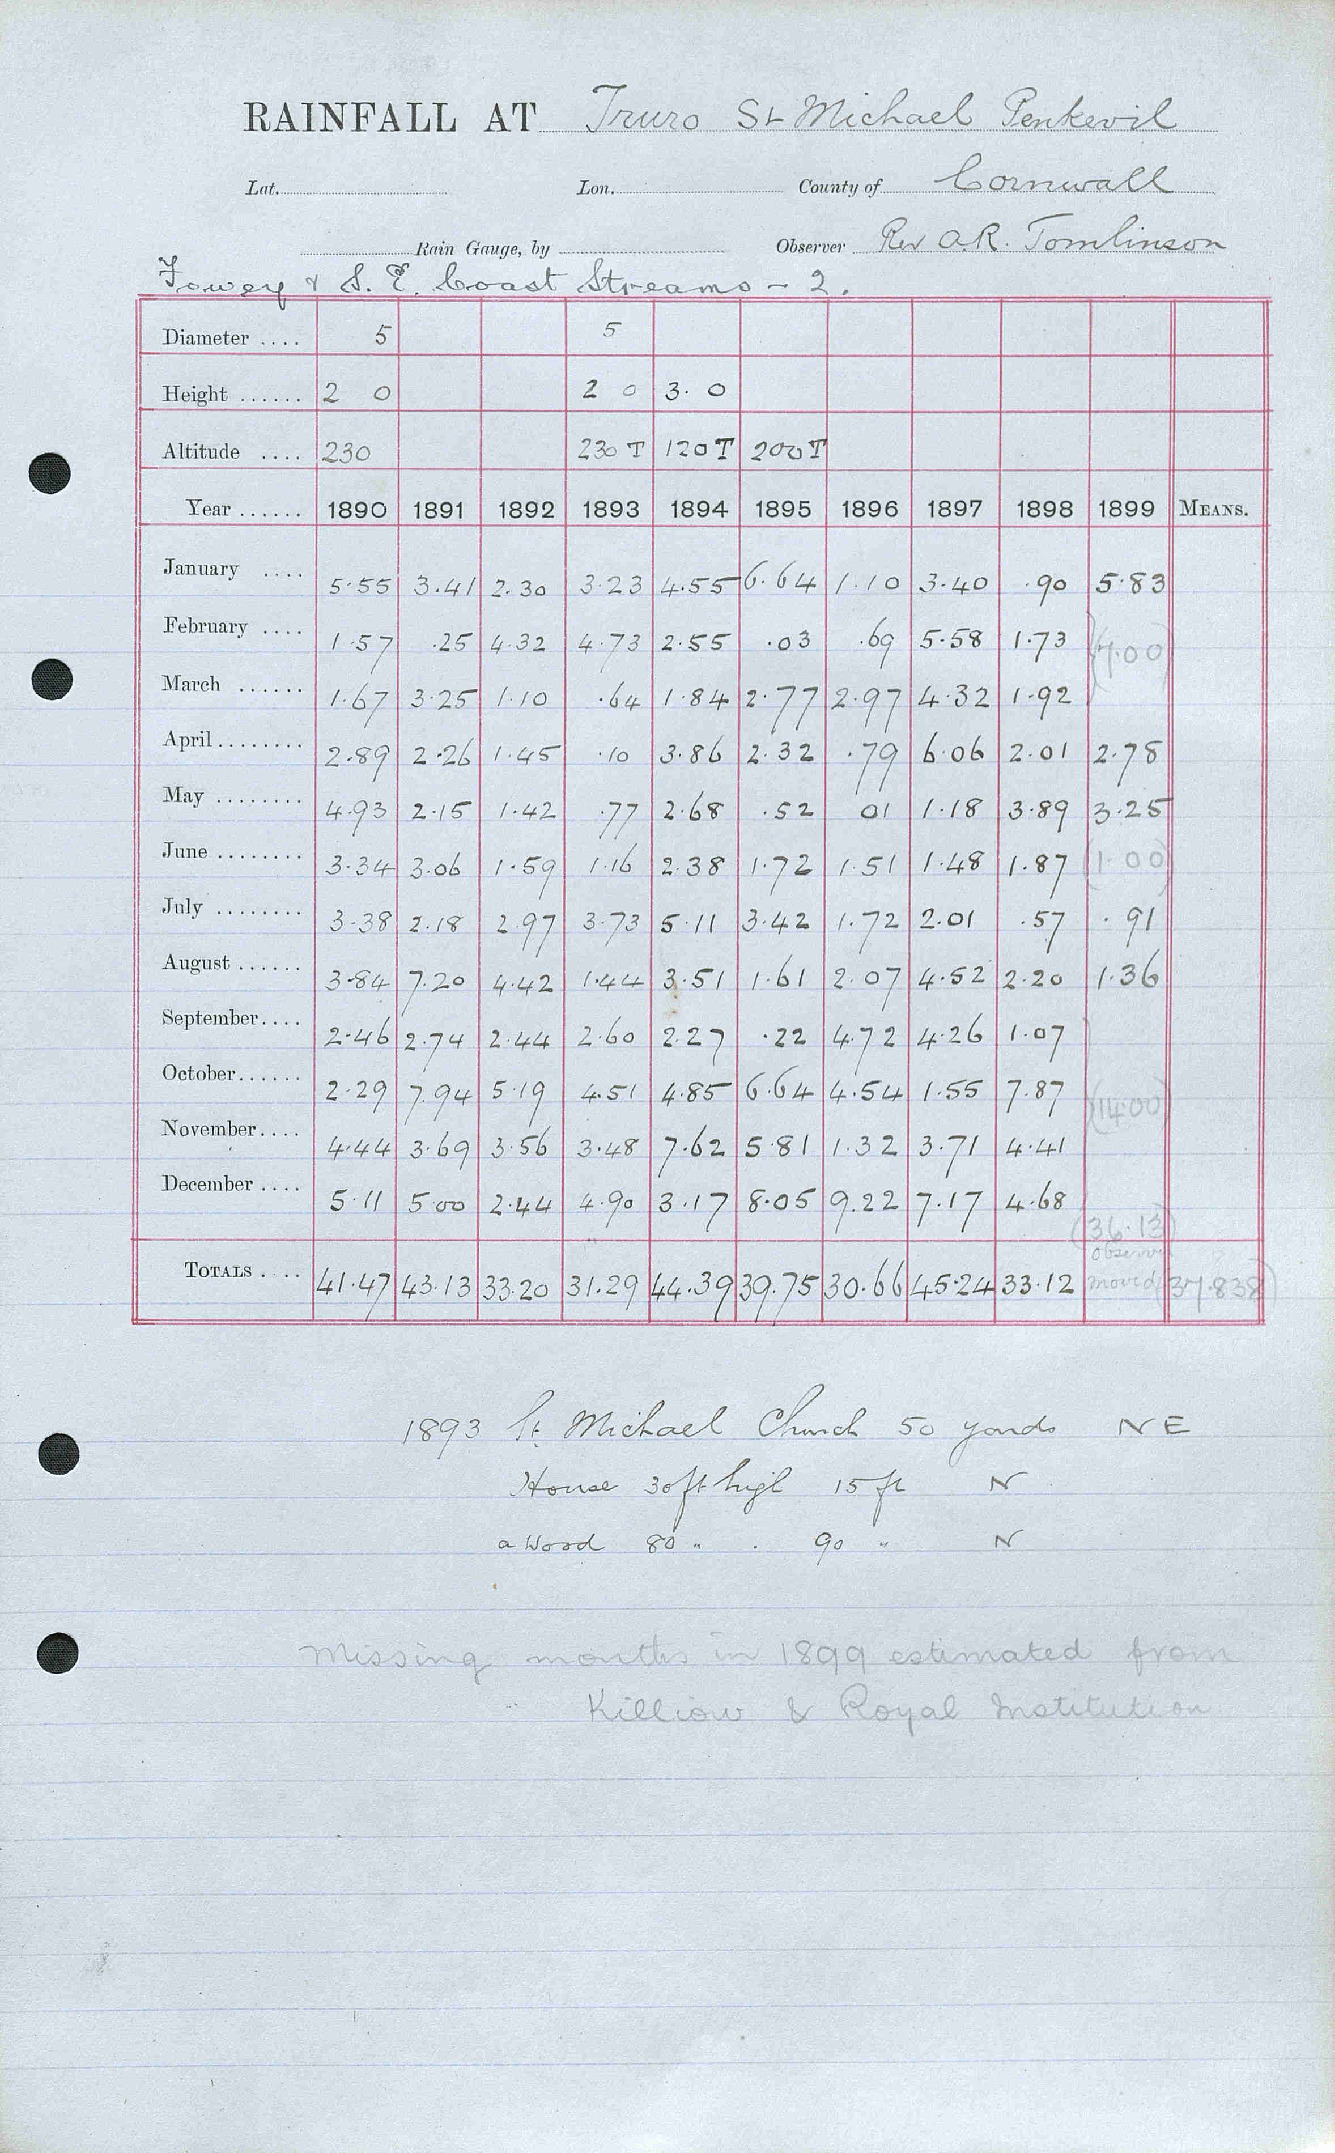 RAINFALL AT Truro St Michael Penkevil
Lat. Lon. County of Cornwall
Rain Gauge, by Observer Rev A.R. Tomlinson
Fowey & S.E. Coast Streams - 2.
Diameter .... 5 5
Height ...... 2 0 2 0 3. 0
Altitude .... 230 230 T 120 T 200 T
Year ...... 1890 1891 1892 1893 1894 1895 1896 1897 1898 1899 MEANS.
January .... 5.55 3.41 2.30 3.23 4.55 6.64 1.10 3.40 .90 5.83
February .... 1.57 .25 4.32 4.73 2.55 .03 .69 5.58 1.73 (7.00)
March ...... 1.67 3.25 1.10 .64 1.84 2.77 2.97 4.32 1.92
April ........ 2.89 2.26 1.45 .10 3.86 2.32 .79 6.06 2.01 2.78
May ........ 4.93 2.15 1.42 .77 2.68 .52 01 1.18 3.89 3.25
June ........ 3.34 3.06 1.59 1.16 2.38 1.72 1.51 1.48 1.87 (1.00)
July ........ 3.38 2.18 2.97 3.73 5.11 3.42 1.72 2.01 .57 .91
August ...... 3.84 7.20 4.42 1.44 3.51 1.61 2.07 4.52 2.20 1.36
September.... 2.46 2.74 2.44 2.60 2.27 .22 4.72 4.26 1.07
October...... 2.29 7.94 5.19 4.51 4.85 6.64 4.54 1.55 7.87 (14.00)
November.... 4.44 3.69 3.56 3.48 7.62 5.81 1.32 3.71 4.41
December .... 5.11 5.00 2.44 4.90 3.17 8.05 9.22 7.17 4.68
(36.13)
observer
TOTALS .... 41.47 43.13 33.20 31.29 44.39 39.75 30.66 45.24 33.12 moved (37.838)
1893 St. Michael Church 50 yards N E
House 30 ft high 15 ft N
a Wood 80 " . 90 " N
Missing months in 1899 estimated from
Killiow & Royal Institution